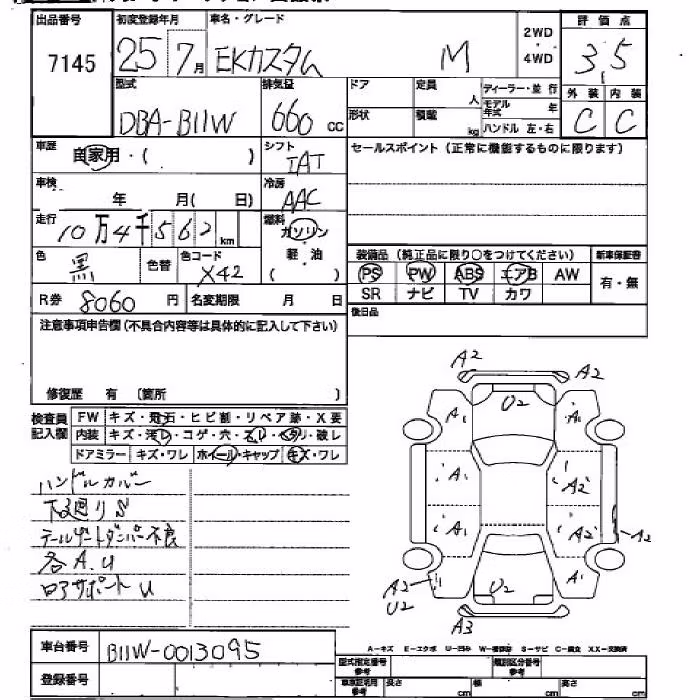 出品番号 初度登録年月 車名・グレード 2WD・4WD 評価点
7145 25 7月 EKカスタム M 3,5
型式 排気量 ドア 定員 人 ディーラー・並行 外装 内装
DBA-B11W 660 cc 形状 積載 kg モデル年式 年 ハンドル 左・右 C C
車歴 自家用・( ) シフト IAT セールスポイント (正常に機能するものに限ります)
車検 年 月( 日) 冷房 AAC
走行 10万4千562 km 燃料 ガソリン・軽油 ( )
色 黒 色替 色コード X42
装備品 (純正品に限り○をつけてください) 新車保証書
PS PW ABS エアB AW 有・無
SR ナビ TV カワ
R券 8060 円 名変期限 月 日 後日品
注意事項申告欄(不具合内容等は具体的に記入して下さい)
修復歴 有 〔箇所 〕
検査員記入欄 FW キズ・飛石・ヒビ割・リペア跡・X要
内装 キズ・汚レ・コゲ・穴・スレ・ヘタリ・破レ
ドアミラー キズ・ワレ ホイール・キャップ キズ・ワレ
ハンドルカバー
下廻りS
テールゲートダンパー不良
各A.U
ロアサポートU
A2
A2
U2
A1 A1
A1 A2
A1 A2 A2
A2 U2 U2 A1
A3
車台番号 B11W-0013095
A-キズ E-エクボ U-凹み W-補修跡 S-サビ C-腐食 XX-交換済
登録番号 型式指定番号 参考 類別区分番号 参考
車庫証明用 参考 長さ cm 幅 cm 高さ cm